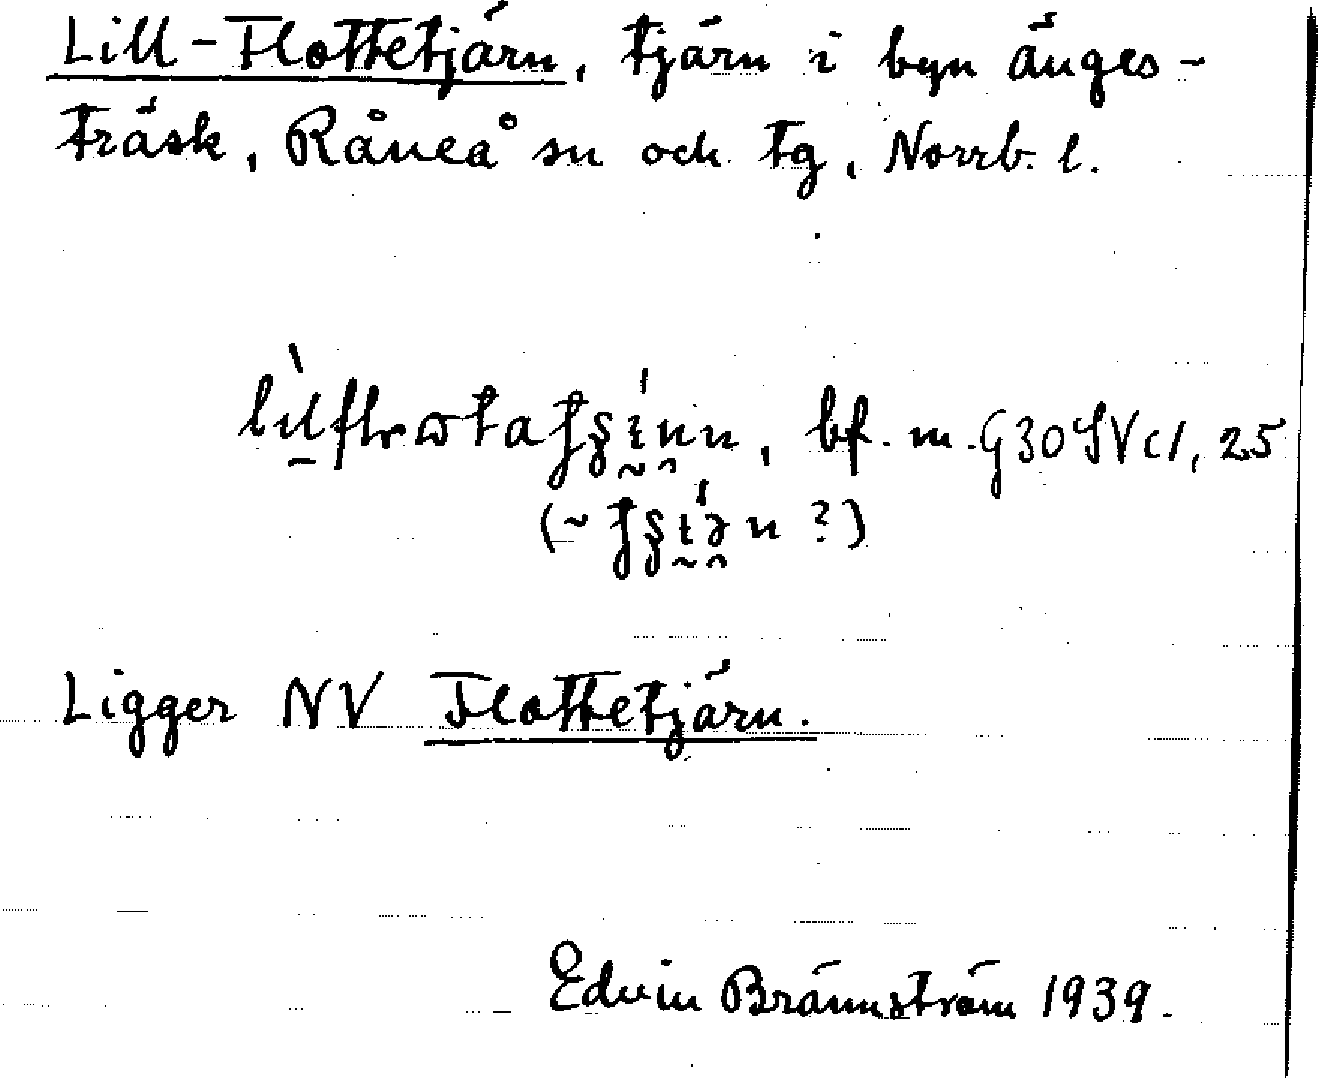 Lill-Flottetjärn, tjärn i byn Änges-
träsk, Råneå sn och tg, Norrb. l.
bf. m. G30SVc1, 25
(~ ?)
Ligger NV Flottetjärn.
Edvin Brännström 1939.